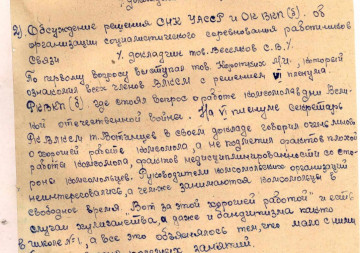 2). Обсуждение решения СНК УАССР и ОК ВКП(б). об
организации социалистического соревнования работников
связи / докладчик тов. Веселков С.В./
По первому вопросу выступал тов. Коротких который
ознакомил всех членов ВЛКСМ с решением VI пленума
РК ВКП(б), где стоял вопрос о работе комсомола в дни Вели-
кой отечественной войны. На VI пленуме секретарь
РК ВЛКСМ т. в своем докладе говорил очень много
о хорошей работе комсомола, а не подметил фактов плохой
работы комсомола, фактов недисциплинированности со сто-
роны комсомольцев. Руководители комсомольских организаций
неинтересовались, а чем же занимаются комсомольцы в
свободное время. Вот за этой "хорошей работой" и есть
случаи хулиганства, а даже и бандитизма как то
в школе №1, а все это объяснялось тем, что мало с ними
занятий.